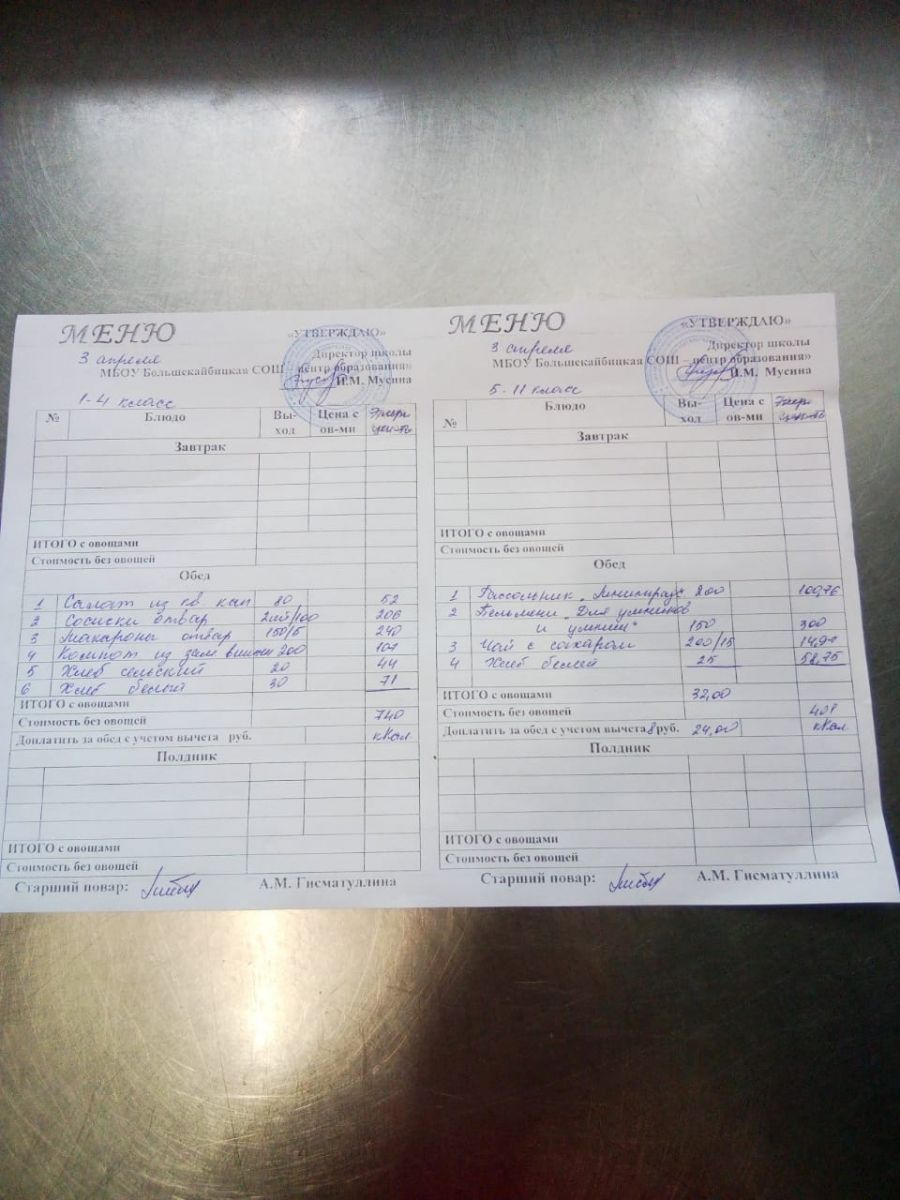 МЕНЮ
«УТВЕРЖДАЮ»
3 апреля
Директор школы
МБОУ Большекайбицкая СОШ – центр образования»
И.М. Мусина
1-4 класс
№ Блюдо Вы-ход Цена с ов-ми Энер цен-ть
Завтрак
ИТОГО с овощами
Стоимость без овощей
Обед
1 Салат из кв кап 80 52
2 Сосиски отвар 2шт/100 206
3 Макароны отвар 150/5 240
4 Компот из зам вишни 200
5 Хлеб сельский 20 44
6 Хлеб белый 30 71
ИТОГО с овощами
Стоимость без овощей 740
Доплатить за обед с учетом вычета руб. кКал
Полдник
ИТОГО с овощами
Стоимость без овощей
Старший повар: А.М. Гисматуллина
МЕНЮ
«УТВЕРЖДАЮ»
3 апреля
Директор школы
МБОУ Большекайбицкая СОШ – центр образования»
И.М. Мусина
5-11 класс
№ Блюдо Вы-ход Цена с ов-ми Энер цен-ть
Завтрак
ИТОГО с овощами
Стоимость без овощей
Обед
1 Рассольник „Ленинград 200
2 Пельмени „Для умников
и умниц" 150 300
3 Чай с сахаром 200/15
4 Хлеб белый 25 58,75
ИТОГО с овощами 32,00
Стоимость без овощей
Доплатить за обед с учетом вычета 8 руб. 24,00 кКал
Полдник
ИТОГО с овощами
Стоимость без овощей
Старший повар: А.М. Гисматуллина